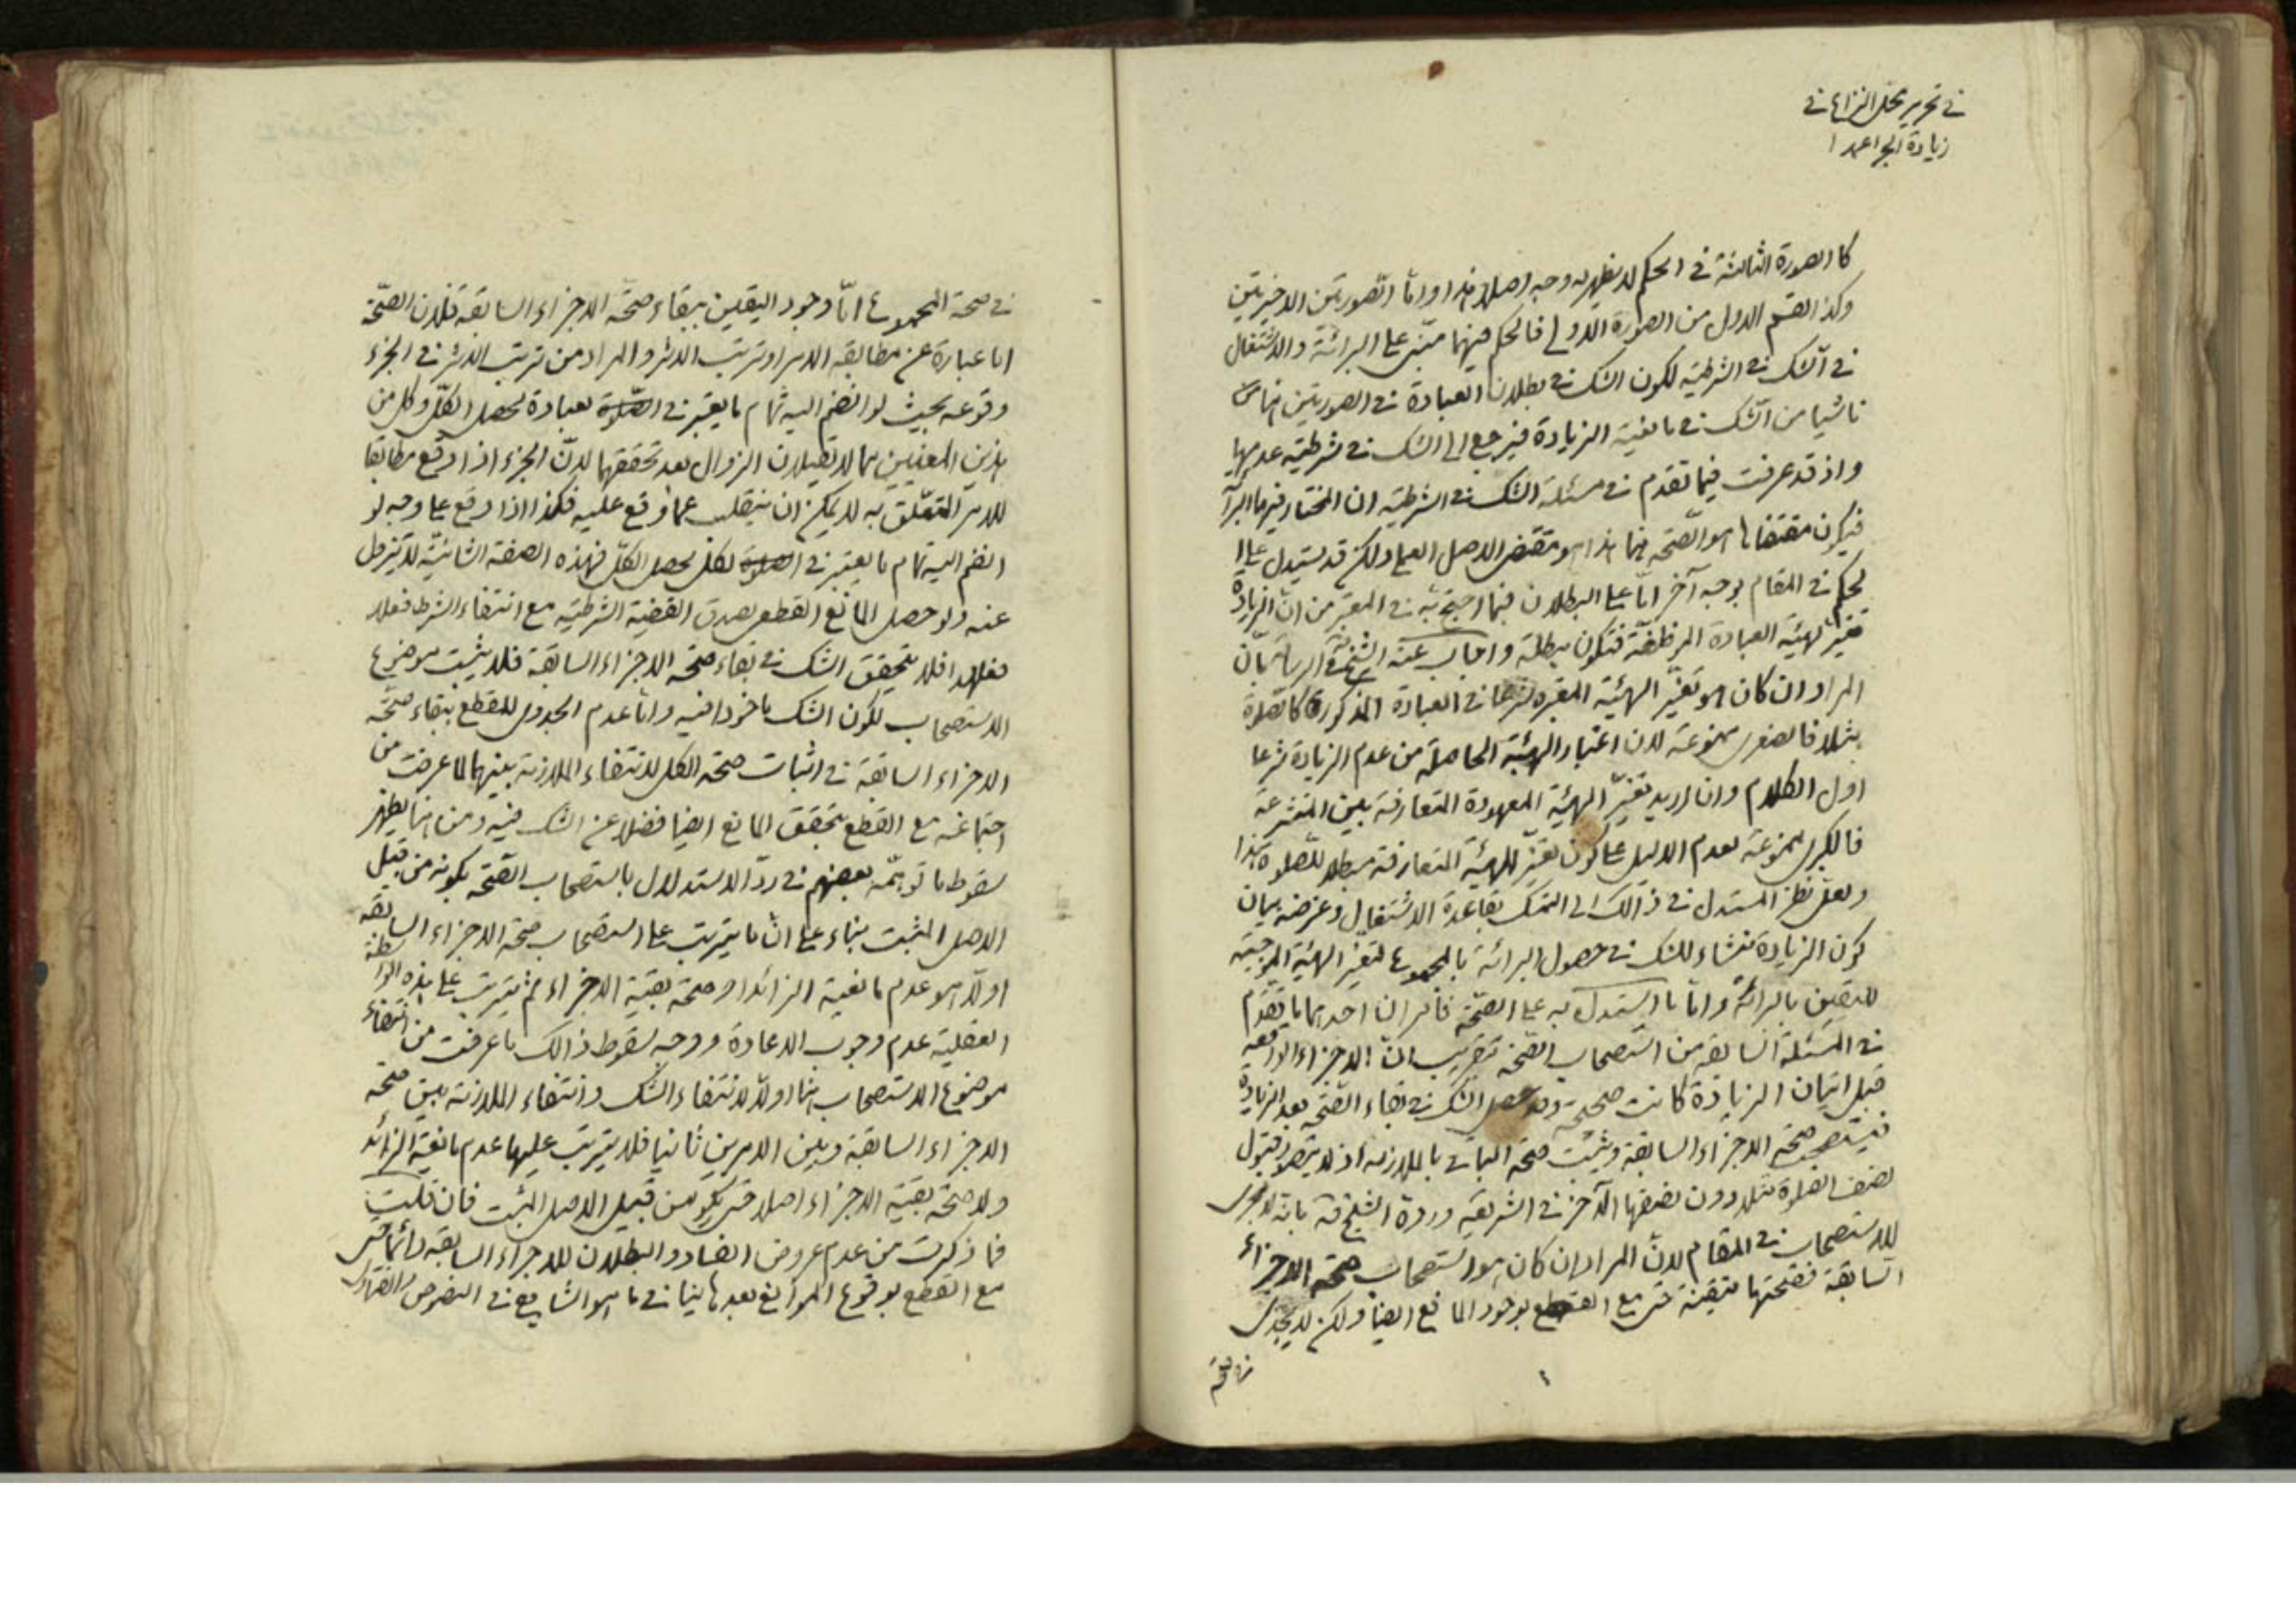 في تحرير محل النزاع في
زيادة الجزء عمدا
كالصورة الثالثة في الحكم لا يظهر له وجه اصلا هذا واما الصورتين الاخيرتين
وكذا القسم الاول من الصورة الاولى فالحكم فيهما مبنى على البرائة والاشتغال
في الشك في الشرطية لكون الشك في بطلان العبادة في الصورتين
ناشيا من الشك في مانعية الزيادة فيرجع الى الشك في شرطية عدمها
واذ قد عرفت فيما تقدم في مسئلة الشك في الشرطية ان المختار فيها البرا
فيكون مقتضاها هو الصحة هذا هو مقتضى الاصل العملى ولكن قد يستدل على ا
لحكم في المقام بوجه آخر امّا على البطلان فبما احتج به في المعتبر من ان الزيادة
تغيير لهيئة العبادة الموظفة فتكون مبطلة واجاب عنه الشيخ في الرسالة بانّ
المراد ان كان هو تغيير الهيئة المعتبرة شرعا في العبادة المذكورة كالصلوة
مثلا فالصغرى ممنوعة لان اعتبار الهيئة الحاصلة من عدم الزيادة شرعا
اول الكلام وان اريد تغيير الهيئة المعهودة المتعارفة بين المتشرعة
فالكبرى ممنوعة لعدم الدليل على كون تغيير الهيئة المتعارفة مبطلا للصلوة هذا
ولعل نظر المستدل في ذالك الى التمسك بقاعدة الاشتغال وغرضه بيان
كون الزيادة منشاء للشك في حصول البرائة بالمجموع لتغير الهيئة الموجبة
لليقين بالبرائة واما ما استدل به على الصحة فامران احدهما ما تقدم
في المسئلة السابقة من استصحاب الصحة بتقريب انّ الاجزاء الواقعة
قبل اتيان الزيادة كانت صحيحة وقد حصل الشك في بقاء الصحة بعد الزيادة
فيستصحب صحة الاجزاء السابقة ويثبت صحة الباقى بالملازمة اذ لا يتصور قبول
نصف الصلوة مثلا دون نصفها الآخر في الشريعة وردّه الشيخ قه بانه لا مجرى
للاستصحاب في المقام لانّ المراد ان كان هو استصحاب صحة الاجزاء
السابقة فصحتها متيقنة حتى مع القطع بوجود المانع ايضا ولكن لا يجدى
في صحة
في صحة المجموع امّا وجود اليقين ببقاء صحة الاجزاء السابقة فلان الصحّة
اما عبارة عن مطابقة الامر او ترتب الاثر والمراد من ترتب الاثر في الجزء
وقوعه بحيث لو انضم اليه تمام ما يعتبر في الصلوة لعبادة لحصل الكلّ وكل من
هذين المعنيين مما لا يقبلان الزوال بعد تحققهما لانّ الجزء اذا وقع مطابقا
للامر المتعلّق به لا يمكن ان ينقلب عما وقع عليه فكذا اذا وقع على وجه لو
انضم اليه تمام ما يعتبر في الصلوة لكل يحصل الكلّ فهذه الصفة الشأنيّة لا يزول
عنه ولو حصل المانع القطعى لصدق القضية الشرطية مع انتفاء الشرط فعلا
فعلى هذا فلا يتحقق الشك في بقاء صحة الاجزاء السابقة فلا يثبت موضوع
الاستصحاب لكون الشك ماخوذا فيه واما عدم الجدوى للقطع ببقاء صحّة
الاجزاء السابقة في اثبات صحة الكل لانتفاء الملازمة بينهما لما عرفت من
اجتماعه مع القطع بتحقق المانع ايضا فضلا عن الشك فيه ومن هنا يظهر
سقوط ما توهّمه بعضهم في ردّ الاستدلال باستصحاب الصّحة بكونه من قبيل
الاصل المثبت بناء على انّ ما يترتب على استصحاب صحة الاجزاء السابقة
اولا هو عدم مانعية الزائد او صحة بقية الاجزاء ثم يترتب على هذه الواسطة
العقلية عدم وجوب الاعادة ووجه سقوط ذالك ما عرفت من انتفاء
موضوع الاستصحاب هنا اولا لانتفاء الشك وانتفاء الملازمة بين صحة
الاجزاء السابقة وبين الامرين ثانيا فلا يترتب عليها عدم مانعية الزائد
ولا صحة بقية الاجزاء اصلا حتى يكون من قبيل الاصل المثبت فان قلت
فما ذكرت من عدم عروض الفساد والبطلان للاجزاء السابقة دائما حتى
مع القطع بوقوع الموانع بعدها ينافي ما هو الشايع في النصوص والفتاوى